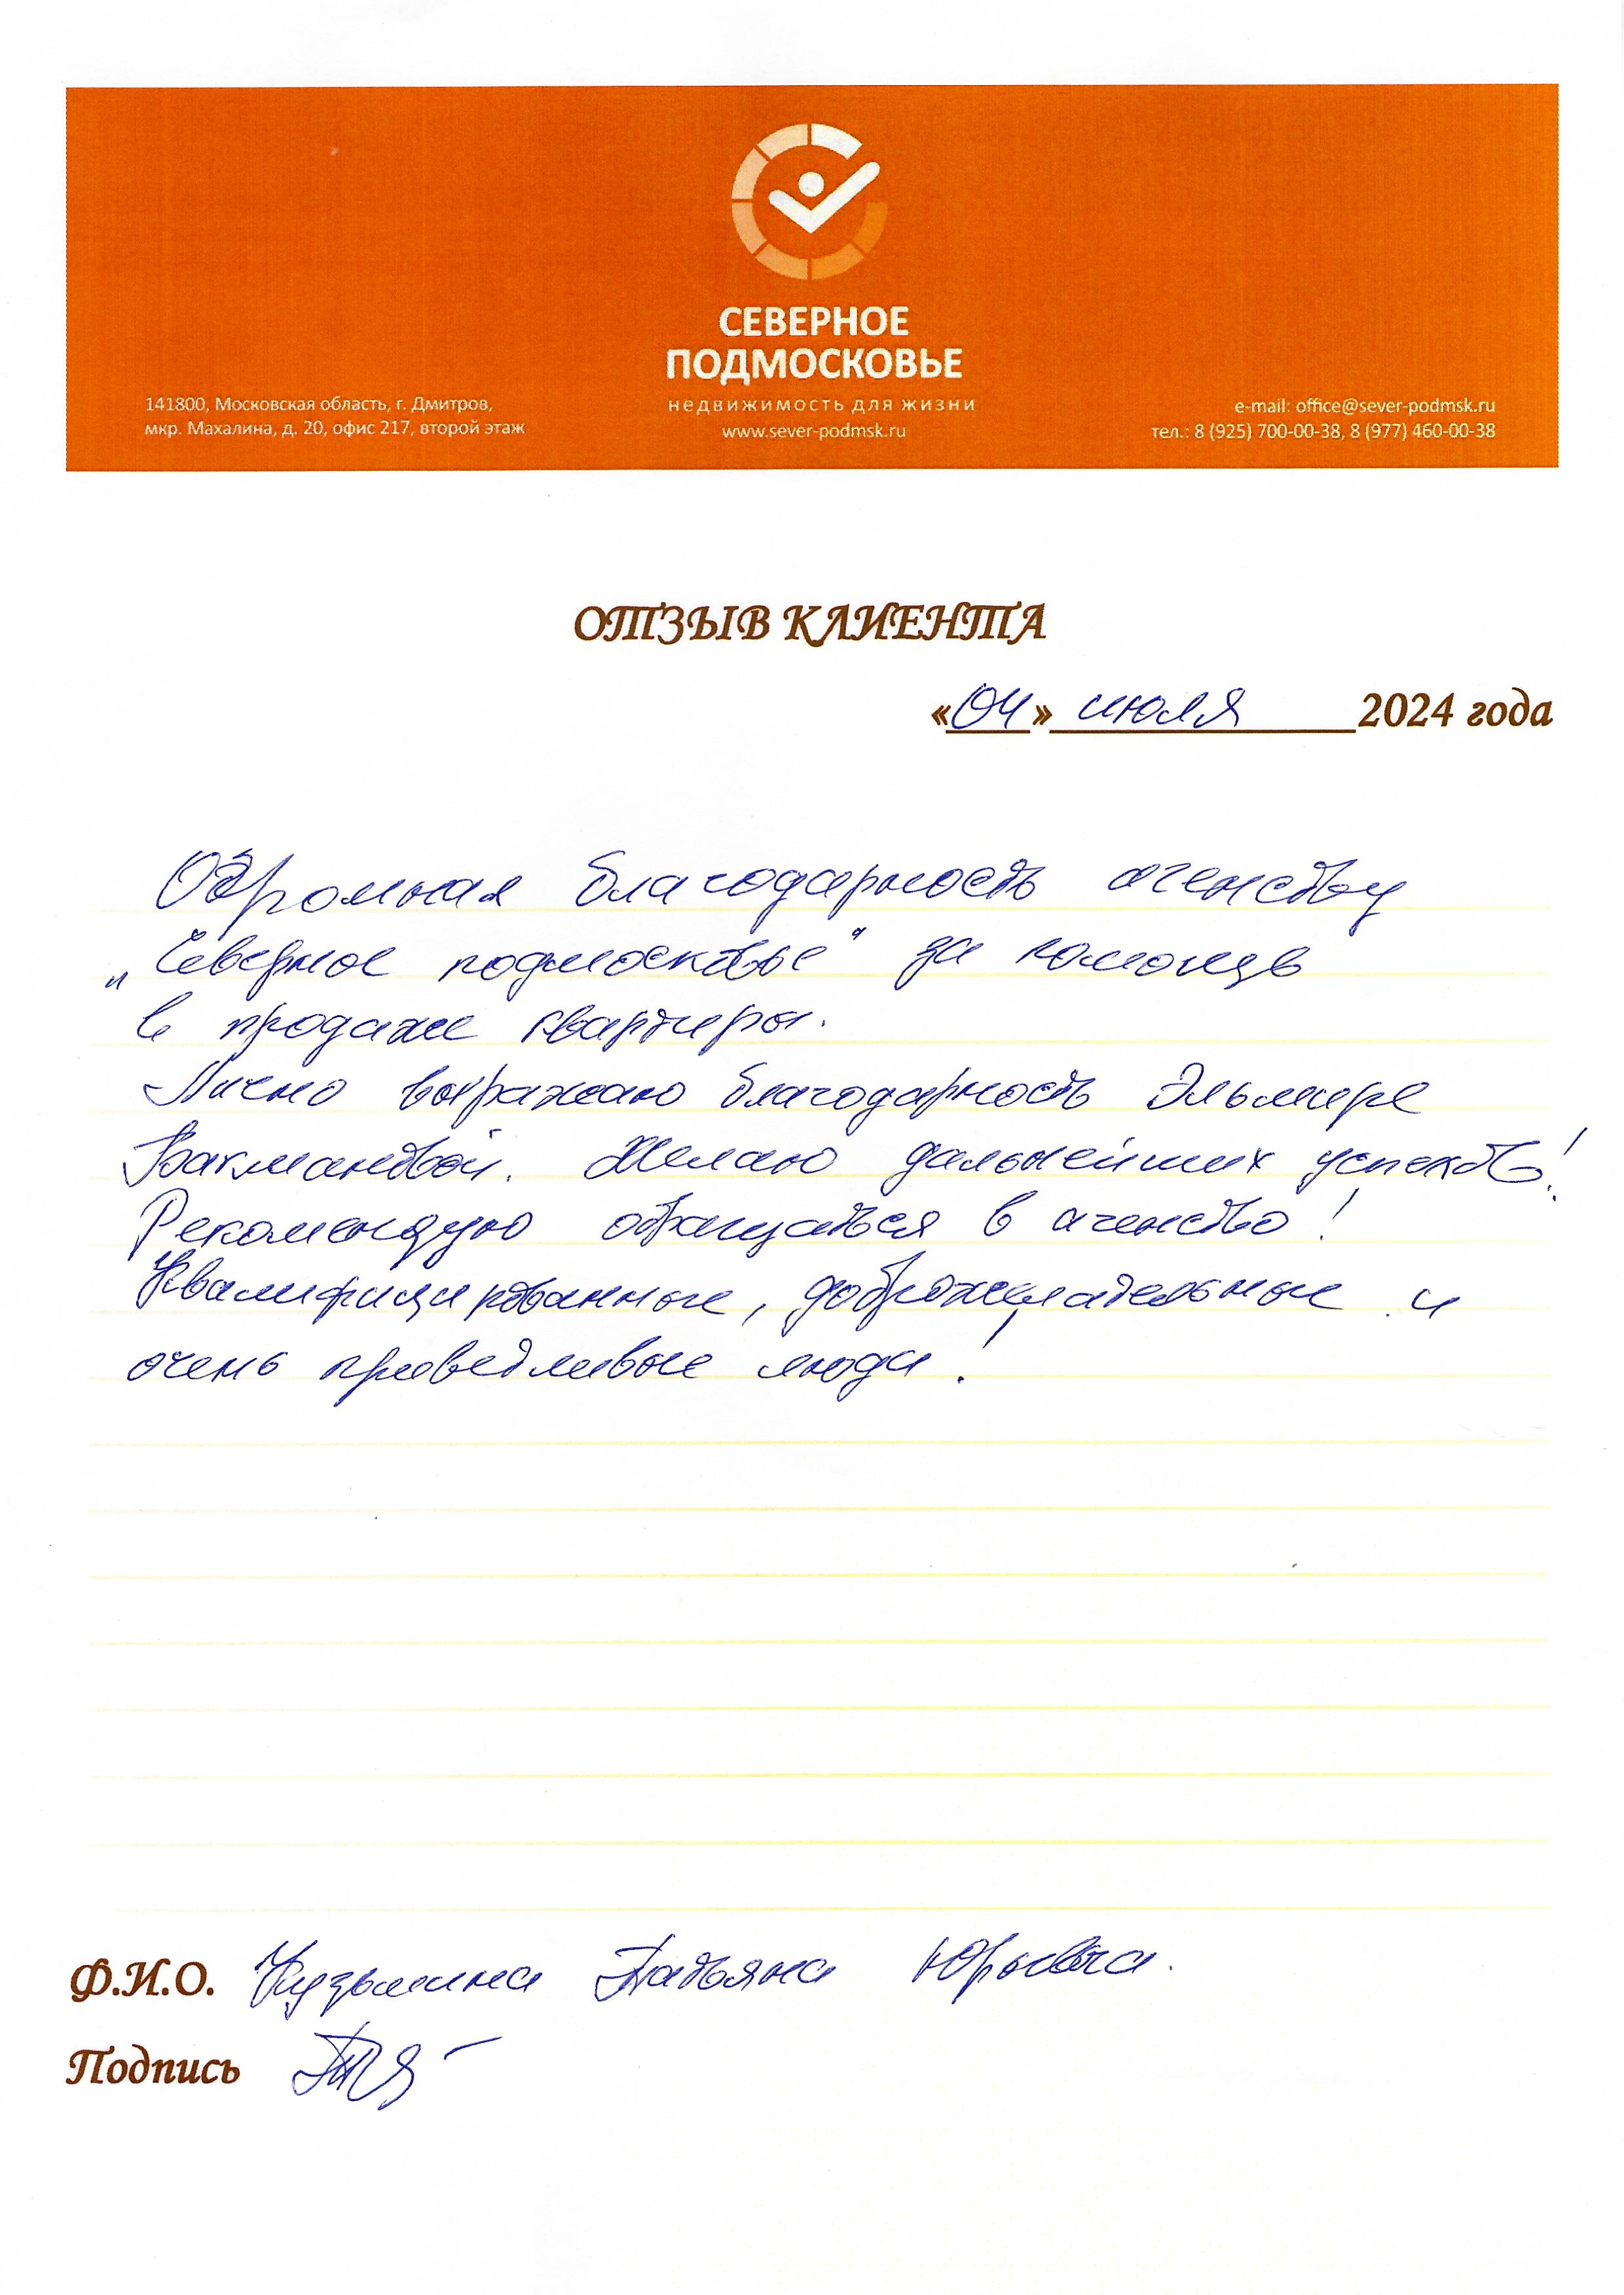 СЕВЕРНОЕ
ПОДМОСКОВЬЕ
недвижимость для жизни
www.sever-podmsk.ru
141800, Московская область, г. Дмитров,
мкр. Махалина, д. 20, офис 217, второй этаж
e-mail: office@sever-podmsk.ru
тел.: 8 (925) 700-00-38, 8 (977) 460-00-38
ОТЗЫВ КЛИЕНТА
«04» июля 2024 года
Огромная благодарность агенству
„Северное подмосковье" за помощь
в продаже квартиры.
Лично выражаю благодарность Эльмире
Бакмановой. Желаю дальнейших успехов!
Рекомендую обращаться в агенство!
Квалифицированные, доброжелательные и
очень приветливые люди!
Ф.И.О. Кузьмина Татьяна Юрьевна.
Подпись